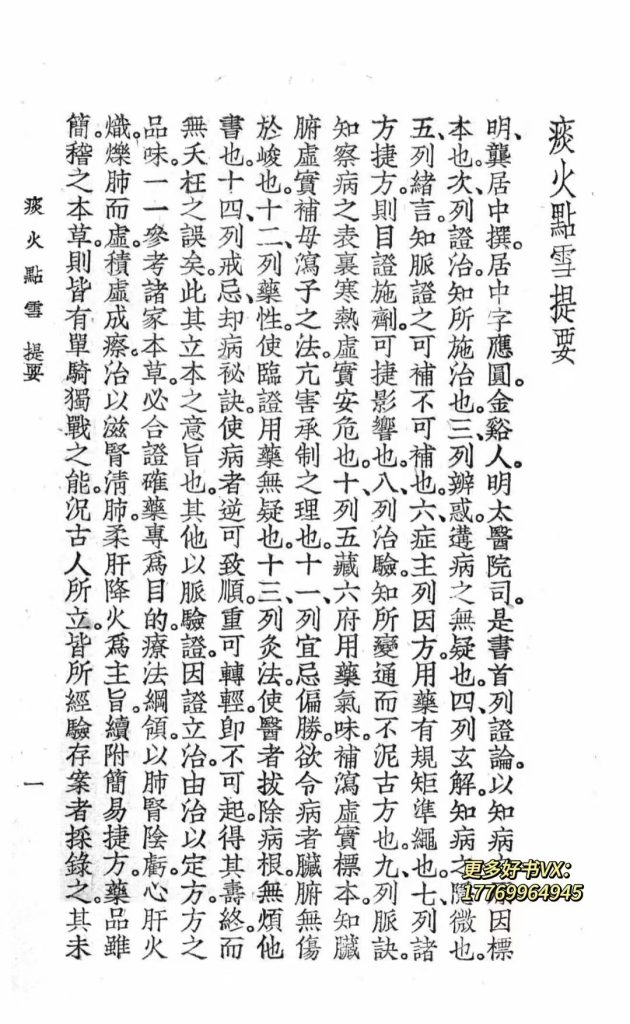 痰火點雪提要
明、龔居中撰。居中字應圓。金谿人。明太醫院司。是書首列證論。以知病因標
本也。次列證治。知所施治也。三、列辨惑。遘病之無疑也。四、列玄解。知病之隱微也。
五、列緒言。知脈證之可補不可補也。六、症主列因方。用藥有規矩準繩也。七、列諸
方捷方。則目證施劑。可捷影響也。八、列治驗。知所變通而不泥古方也。九、列脈訣。
知察病之表裏寒熱虛實安危也。十、列五藏六府用藥氣味。補瀉虛實標本。知臟
腑虛實補母瀉子之法。亢害承制之理也。十一、列宜忌偏勝。欲令病者臟腑無傷
於峻也。十二、列藥性。使臨證用藥無疑也。十三、列灸法。使醫者拔除病根。無煩他
書也。十四、列戒忌、却病祕訣。使病者逆可致順。重可轉輕。卽不可起。得其壽終。而
無夭枉之誤矣。此其立本之意旨也。其他以脈驗證。因證立治。由治以定方。方之
品味。一一參考諸家本草。必合證確藥專爲目的。療法綱領。以肺腎陰虧。心肝火
熾。爍肺而虛。積虛成瘵。治以滋腎清肺。柔肝降火爲主旨。續附簡易捷方。藥品雖
簡。稽之本草。則皆有單騎獨戰之能。況古人所立。皆所經驗存案者採錄之。其未
痰火點雪 提要
一
更多好书VX：
17769964945